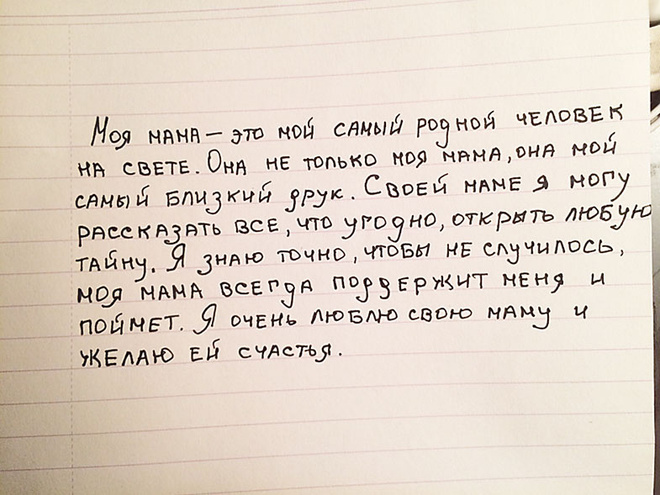 Моя мама – это мой самый родной человек
на свете. Она не только моя мама, она мой
самый близкий друк. Своей маме я могу
рассказать все, что угодно, открыть любую
тайну. Я знаю точно, чтобы не случилось,
моя мама всегда поддержит меня и
поймет. Я очень люблю свою маму и
желаю ей счастья.